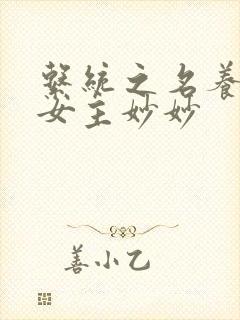 繫統之名養
女主妙妙
善小乙